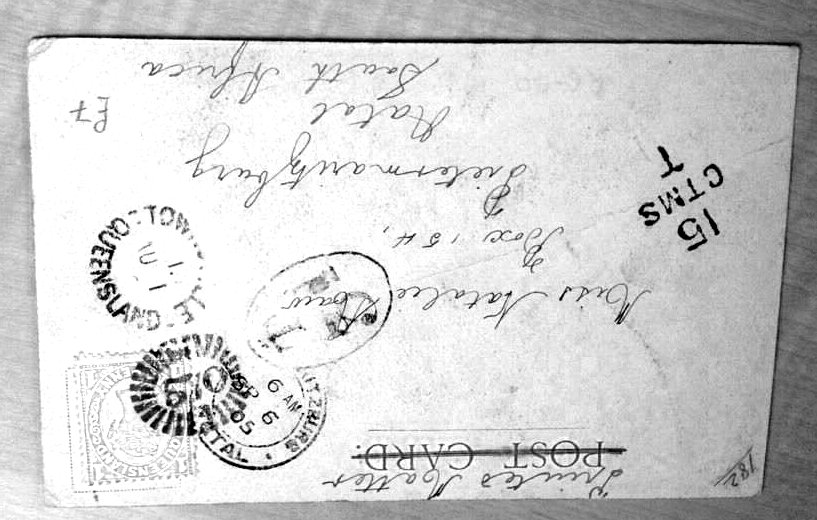 Printed Matter
POST CARD.
Miss Natalie
Box 154,
Pietermaritzburg
Natal
South Africa
15
CTMS
T
TOWNSVILLE
QUEENSLAND
SP 6
05
6 AM
NATAL
182